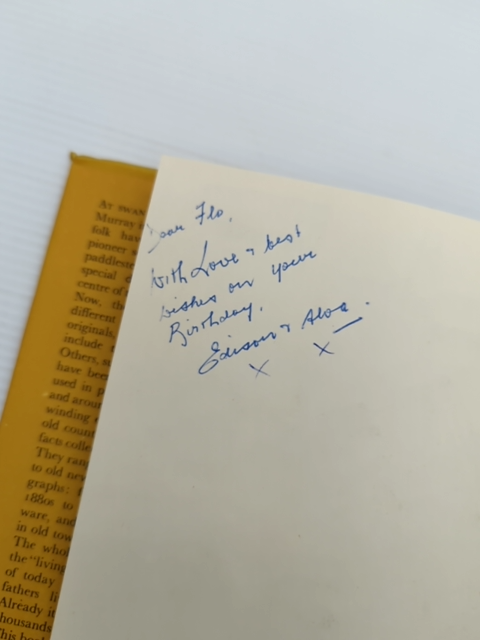 Dear Flo,
With Love & best
wishes on your
Birthday.
Edison &
x x
AT SWAN
Murray
folk hav
pioneer
paddleste
special
centre of
Now, th
different
originals,
include
Others, s
have bee
used in p
and arou
winding
old coun
facts colle
They ran
to old nev
graphs:
1880s to
ware, and
in old tow
The whol
the "living
of today
fathers li
Already it
thousands
This bo